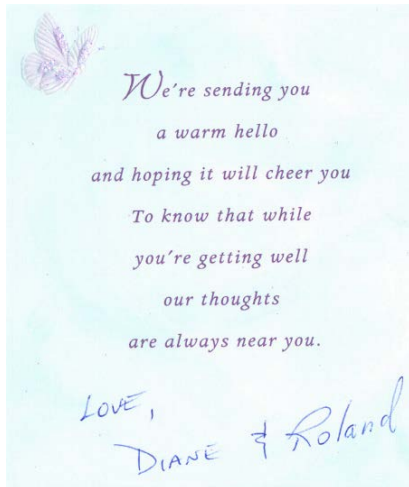 We're sending you
a warm hello
and hoping it will cheer you
To know that while
you're getting well
our thoughts
are always near you.
LOVE,
DIANE & Roland